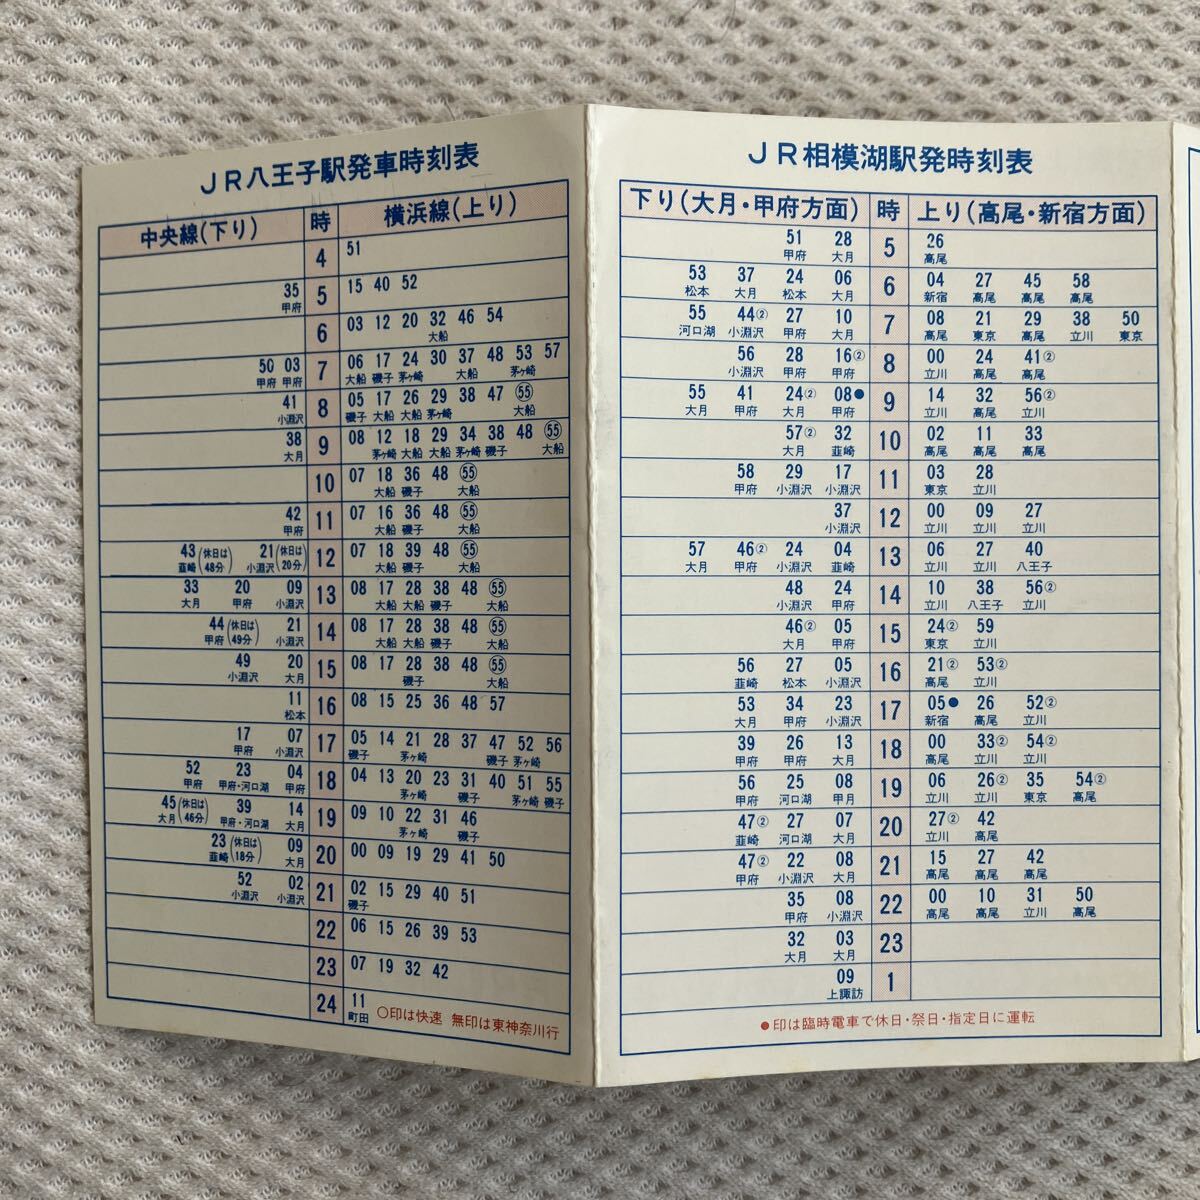 JR八王子駅発車時刻表
中央線(下り) 時 横浜線(上り)
4 51
35 5 15 40 52
甲府
6 03 12 20 32 46 54
大船
50 03 7 06 17 24 30 37 48 53 57
甲府 甲府 大船 磯子 茅ヶ崎 大船 茅ヶ崎
41 8 05 17 26 29 38 47 55
小淵沢 磯子 大船 大船 茅ヶ崎 大船
38 9 08 12 18 29 34 38 48 55
大月 茅ヶ崎 大船 大船 茅ヶ崎 磯子 大船
10 07 18 36 48 55
大船 磯子 大船
42 11 07 16 36 48 55
甲府 大船 磯子 大船
43(休日は48分) 21(休日は20分) 12 07 18 39 48 55
韮崎 小淵沢 大船 磯子 大船
33 20 09 13 08 17 28 38 48 55
大月 甲府 小淵沢 大船 大船 磯子 大船
44(休日は49分) 21 14 08 17 28 38 48 55
甲府 小淵沢 大船 大船 磯子 大船
49 20 15 08 17 28 38 48 55
小淵沢 大月 磯子 大船
11 16 08 15 25 36 48 57
松本
17 07 17 05 14 21 28 37 47 52 56
甲府 小淵沢 磯子 茅ヶ崎 磯子 茅ヶ崎
52 23 04 18 04 13 20 23 31 40 51 55
甲府 甲府・河口湖 甲府 茅ヶ崎 磯子 茅ヶ崎 磯子
45(休日は46分) 39 14 19 09 10 22 31 46
大月 甲府・河口湖 大月 茅ヶ崎 磯子
23(休日は18分) 09 20 00 09 19 29 41 50
韮崎 大月
52 02 21 02 15 29 40 51
小淵沢 小淵沢 磯子
22 06 15 26 39 53
23 07 19 32 42
24 11
町田 ○印は快速 無印は東神奈川行
JR相模湖駅発時刻表
下り(大月・甲府方面) 時 上り(高尾・新宿方面)
51 28 5 26
甲府 大月 高尾
53 37 24 06 6 04 27 45 58
松本 大月 松本 大月 新宿 高尾 高尾 高尾
55 44② 27 10 7 08 21 29 38 50
河口湖 小淵沢 甲府 大月 高尾 東京 高尾 立川 東京
56 28 16② 8 00 24 41②
小淵沢 甲府 甲府 立川 高尾 高尾
55 41 24② 08● 9 14 32 56②
大月 甲府 大月 甲府 立川 高尾 立川
57② 32 10 02 11 33
大月 韮崎 高尾 高尾 高尾
58 29 17 11 03 28
甲府 小淵沢 小淵沢 東京 立川
37 12 00 09 27
小淵沢 立川 立川 立川
57 46② 24 04 13 06 27 40
大月 甲府 小淵沢 韮崎 立川 立川 八王子
48 24 14 10 38 56②
小淵沢 甲府 立川 八王子 立川
46② 05 15 24② 59
大月 甲府 東京 立川
56 27 05 16 21② 53②
韮崎 松本 小淵沢 高尾 立川
53 34 23 17 05● 26 52②
大月 甲府 小淵沢 新宿 高尾 立川
39 26 13 18 00 33② 54②
甲府 甲府 大月 高尾 立川 立川
56 25 08 19 06 26② 35 54②
甲府 河口湖 甲月 立川 立川 東京 高尾
47② 27 07 20 27② 42
韮崎 河口湖 大月 立川 高尾
47② 22 08 21 15 27 42
甲府 小淵沢 大月 高尾 高尾 高尾
35 08 22 00 10 31 50
甲府 小淵沢 高尾 高尾 立川 高尾
32 03 23
大月 大月
09 1
上諏訪
●印は臨時電車で休日・祭日・指定日に運転